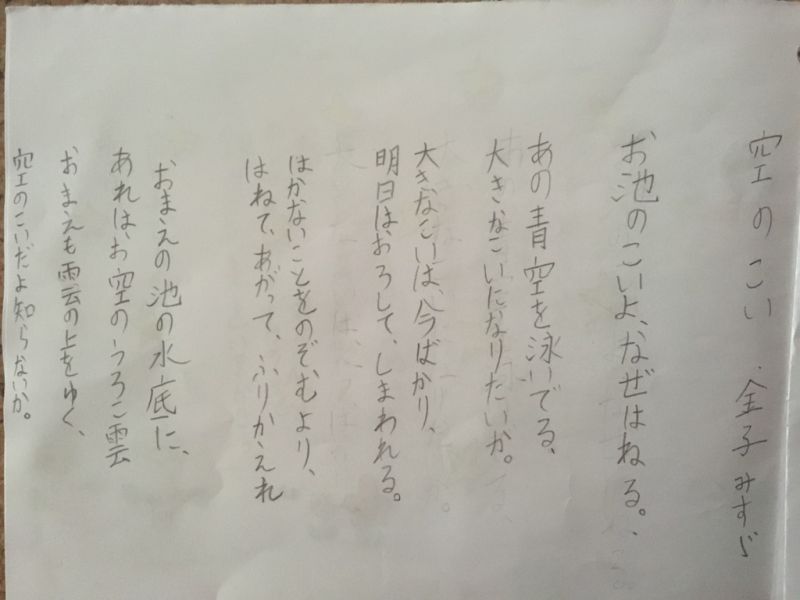 空のこい 金子みすゞ
お池のこいよ、なぜはねる。
あの青空を泳いでる、
大きなこいになりたいか。
大きなこいは、今ばかり、
明日はおろして、しまわれる。
はかないことをのぞむより、
はねて、あがって、ふりかえれ
おまえの池の水底に、
あれはお空のうろこ雲
おまえも雲の上をゆく、
空のこいだよ知らないか。